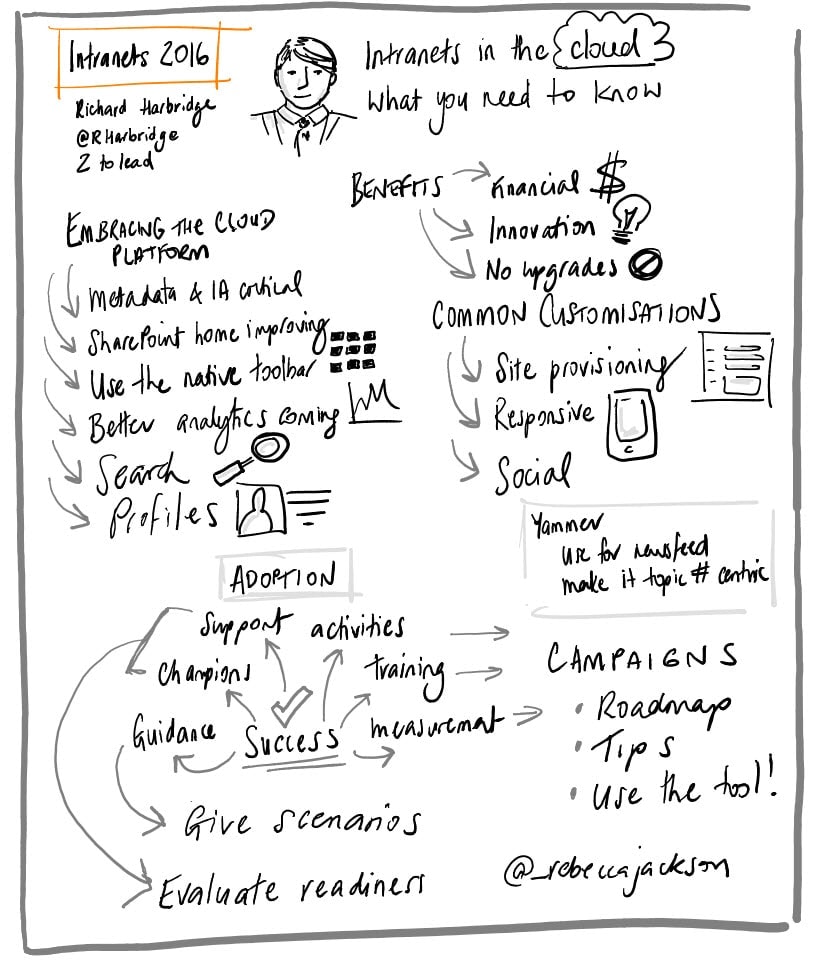 Intranets 2016
Richard Harbridge
@RHarbridge
2 to lead
Intranets in the cloud
What you need to know
BENEFITS
Financial $
Innovation
No upgrades
EMBRACING THE CLOUD
PLATFORM
Metadata & IA critical
SharePoint home improving
Use the native toolbar
Better analytics coming
Search
Profiles
COMMON CUSTOMISATIONS
Site provisioning
Responsive
Social
Yammer
use for newsfeed
make it topic # centric
ADOPTION
Support activities
Champions training
Guidance Success measuremat
Give scenarios
Evaluate readiness
CAMPAIGNS
• Roadmap
• Tips
• Use the tool!
@_rebeccajackson